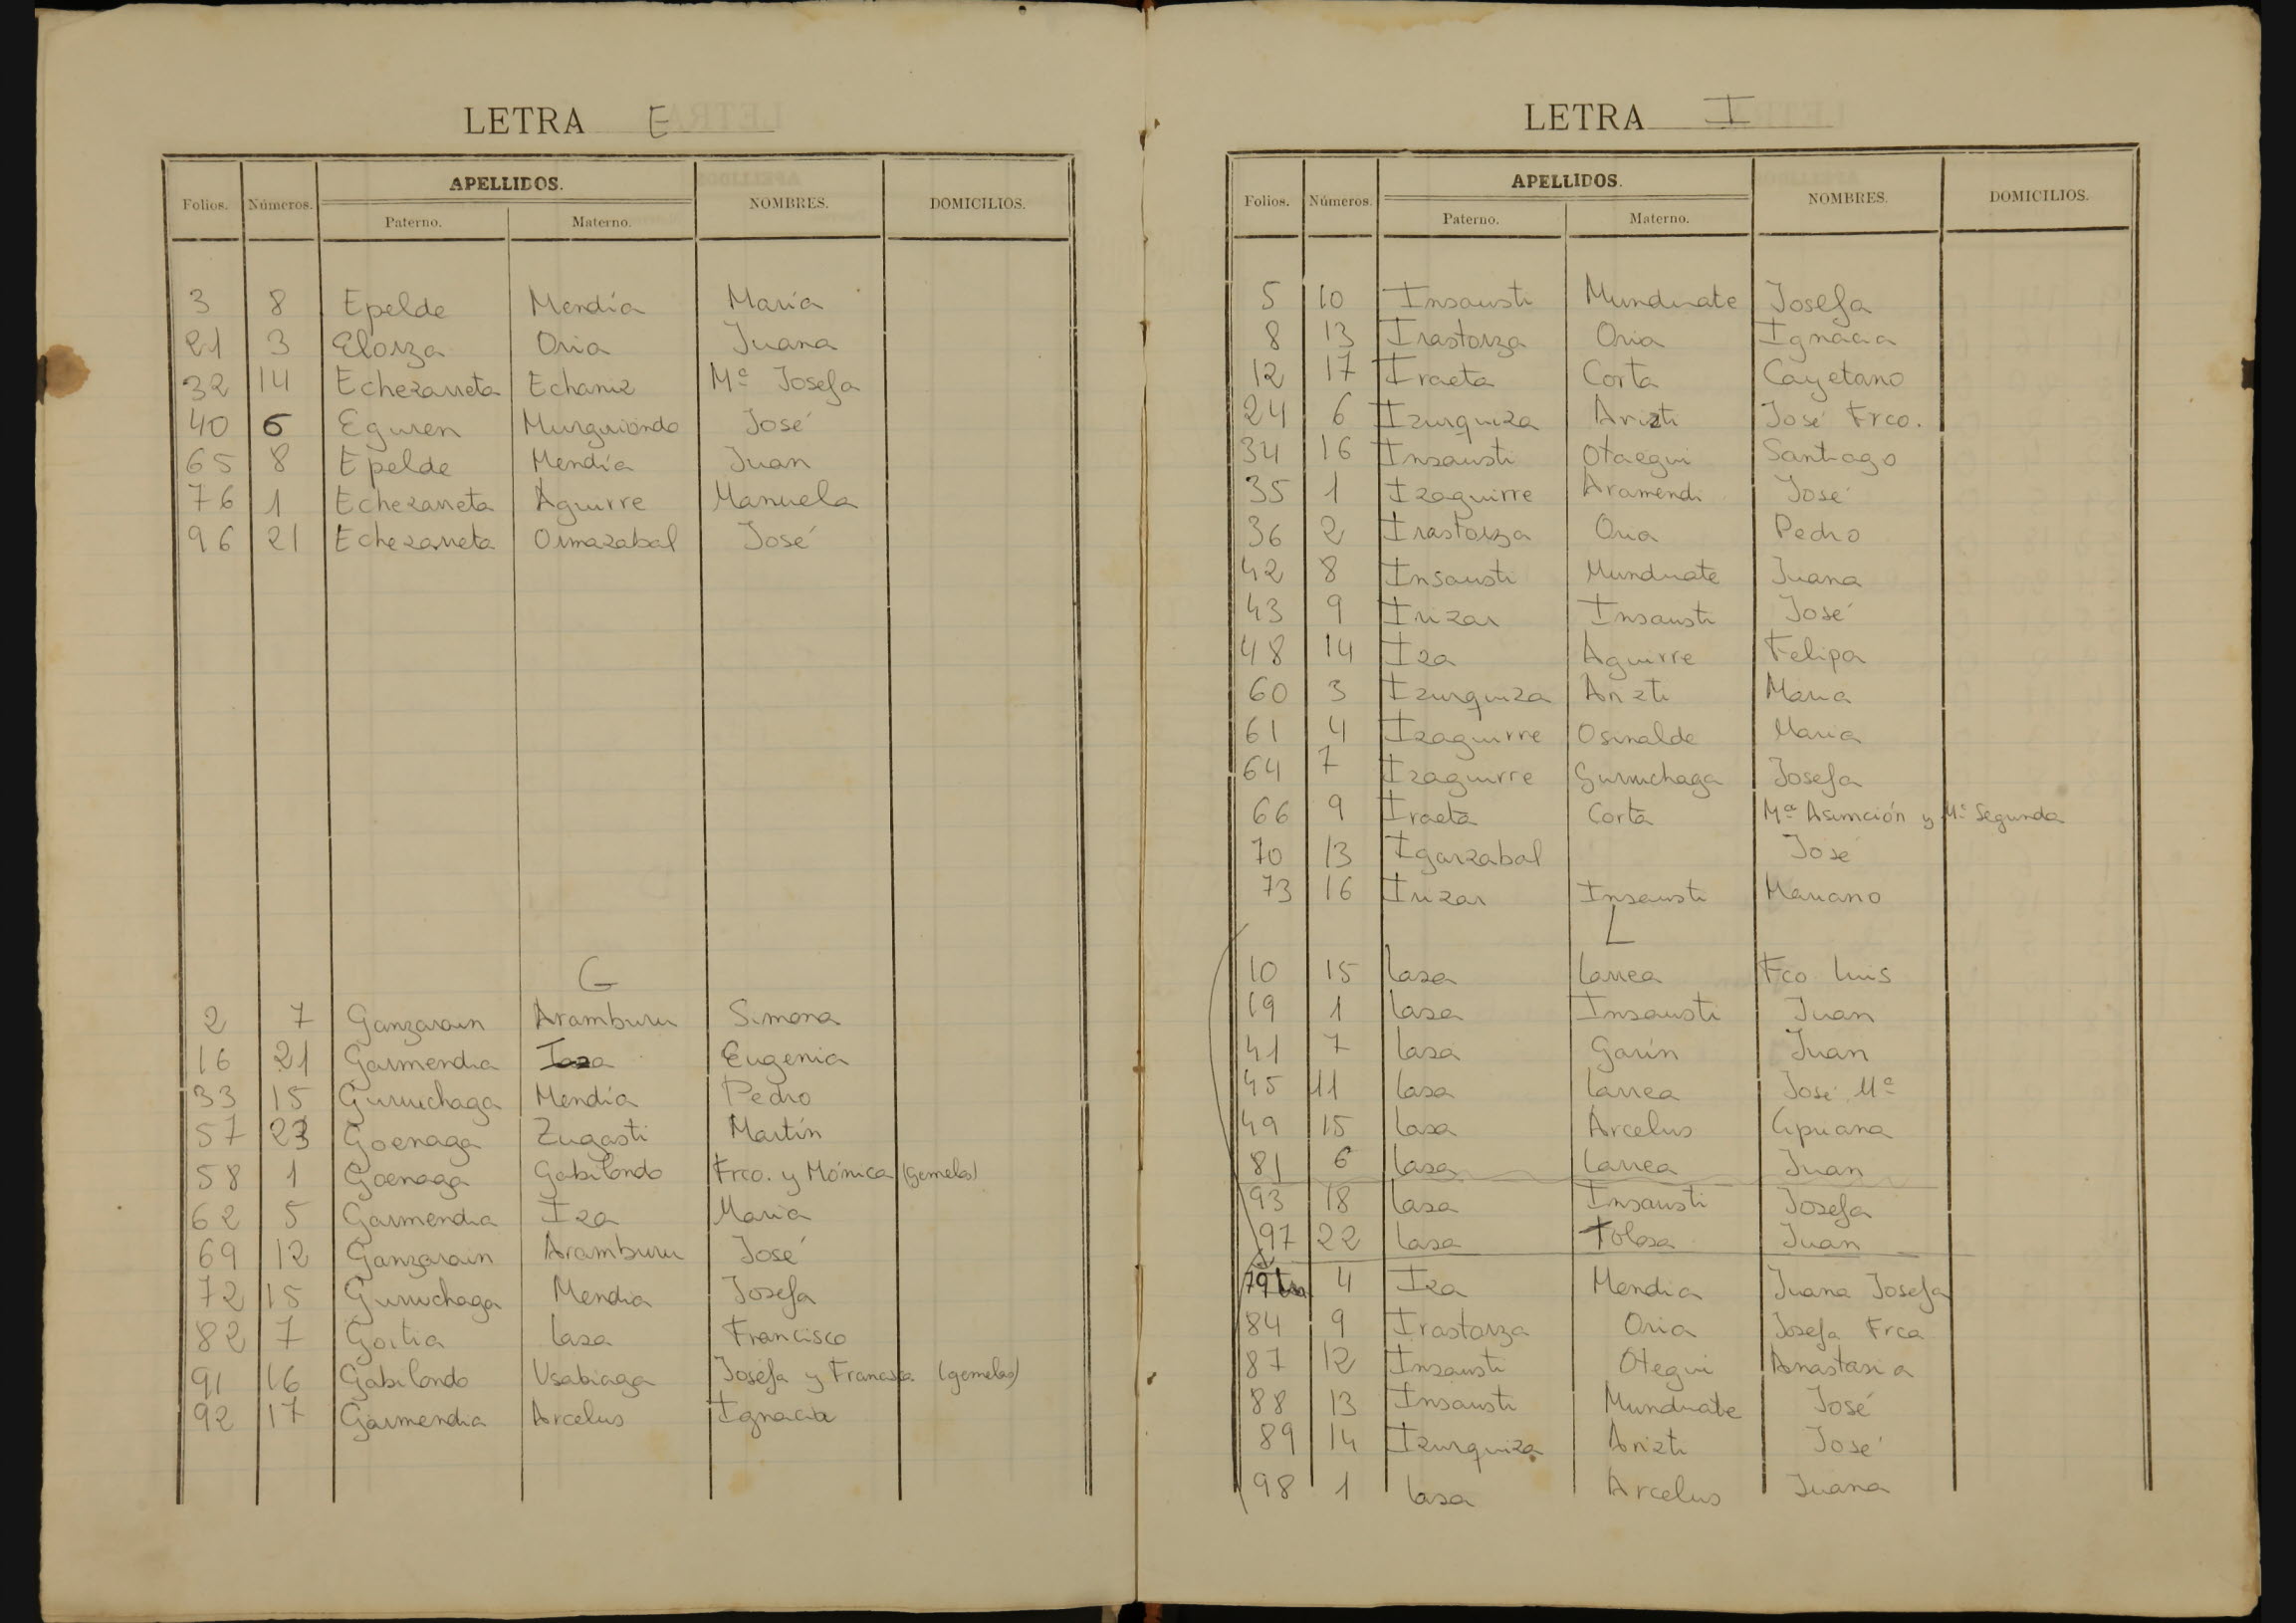 LETRA E
Folios. Números. APELLIDOS. NOMBRES. DOMICILIOS.
Paterno. Materno.
3 8 Epelde Mendía María
21 3 Elorza Oria Juana
32 14 Echezarreta Echaniz Mª Josefa
40 6 Eguren Murguiondo José
65 8 Epelde Mendía Juan
76 1 Echezarreta Aguirre Manuela
96 21 Echezarreta Ormazabal José
G
2 7 Ganzarain Aramburu Simona
16 21 Garmendia Eugenia
33 15 Guruchaga Mendía Pedro
57 23 Goenaga Zugasti Martín
58 1 Goenaga Gabilondo Frco. y Mónica (gemelos)
62 5 Garmendia Iza Maria
69 12 Ganzarain Aramburu José
72 15 Guruchaga Mendia Josefa
82 7 Goitia Lasa Francisco
91 16 Gabilondo Usabiaga Josefa y Francisca (gemelas)
92 17 Garmendia Arcelus Ignacia
LETRA I
Folios. Números. APELLIDOS. NOMBRES. DOMICILIOS.
Paterno. Materno.
5 10 Insausti Munduate Josefa
8 13 Irastorza Oria Ignacia
12 17 Iraeta Corta Cayetano
24 6 Izurquiza Arizti José Frco.
34 16 Insausti Otaegui Santiago
35 1 Izaguirre Aramendi José
36 2 Irastorza Oria Pedro
42 8 Insausti Munduate Juana
43 9 Irizar Insausti José
48 14 Iza Aguirre Felipa
60 3 Izurquiza Arizti Maria
61 4 Izaguirre Osinalde Maria
64 7 Izaguirre Guruchaga Josefa
66 9 Iraeta Corta Mª Asunción y Mª Segunda
70 13 Igarzabal José
73 16 Irizar Insausti Mariano
L
10 15 Lasa Larrea Fco Luis
19 1 Lasa Insausti Juan
41 7 Lasa Garín Juan
45 11 Lasa Larrea José Mª
49 15 Lasa Arcelus Cipriana
81 6 Lasa Larrea Juan
93 18 Lasa Insausti Josefa
97 22 Lasa Tolosa Juan
79 4 Iza Mendia Juana Josefa
84 9 Irastorza Oria Josefa Frca
87 12 Insausti Otegui Anastasia
88 13 Insausti Munduate José
89 14 Izurquiza Arizti José
98 1 Lasa Arcelus Juana